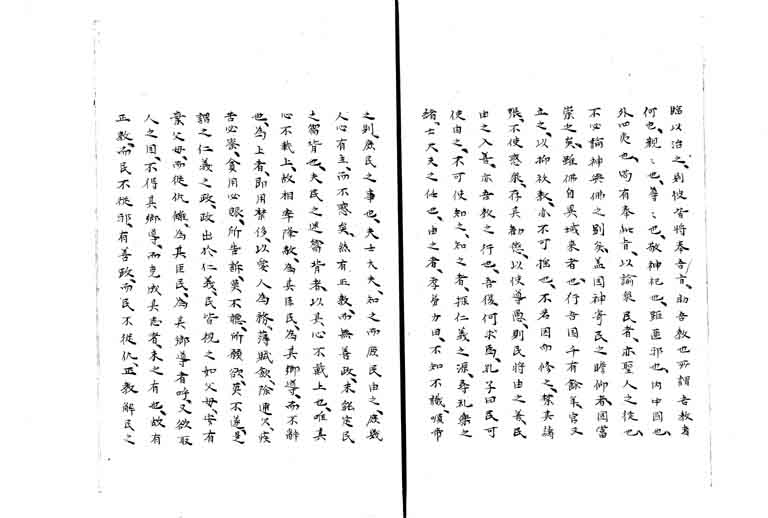 臨以治之、則彼皆將奉吾旨、助吾教也、所謂吾教者
何也、親〻也、尊〻也、敬神祀也、距匪邪也、內中国也、
外四夷也、苟有奉此旨、以諭衆民者、亦聖人之徒也、
不必論神與佛之別矣、蓋因神寺民之瞻仰者、固當
崇之矣、雖佛自異域来者也、行吾国千有餘年、官又
立之、以抑妖教、亦不可捨也、不若因而修之、禁其譸
張、不使惑衆、存其勧懲、以使導愚、則民將由之、義民
由之入善、亦吾教之行也、吾復何求焉、孔子曰、民可
使由之、不可使知之、知之者、推仁義之源、尋礼樂之
緒、士大夫之任也、由之者、孝曽力田、不知不識、順帝
之則、庶民之事也、夫士大夫知之、而庶民由之、庶幾
人心有主、而不惑矣、然有正教、而無善政、未能定民
之嚮背也、夫民之迷嚮背者、以其心不戴上也、唯其
心不戴上、故相率降敵、為其臣民、為其郷導、而不辞
也、為上者、節用禁侈、以愛人為務、薄賦斂、除逋欠、疾
苦必察、貧用必賑、所告訴、莫不聴、所願欲、莫不遂、是
謂之仁義之政、政出於仁義、民皆視之如父母、安有
棄父母、而從仇讎、為其臣民、為其郷導者乎、又欲取
人之国、不得其郷導、而克成其志者、未之有也、故有
正教、而民不從邪、有善政、而民不從仇、正教解民之